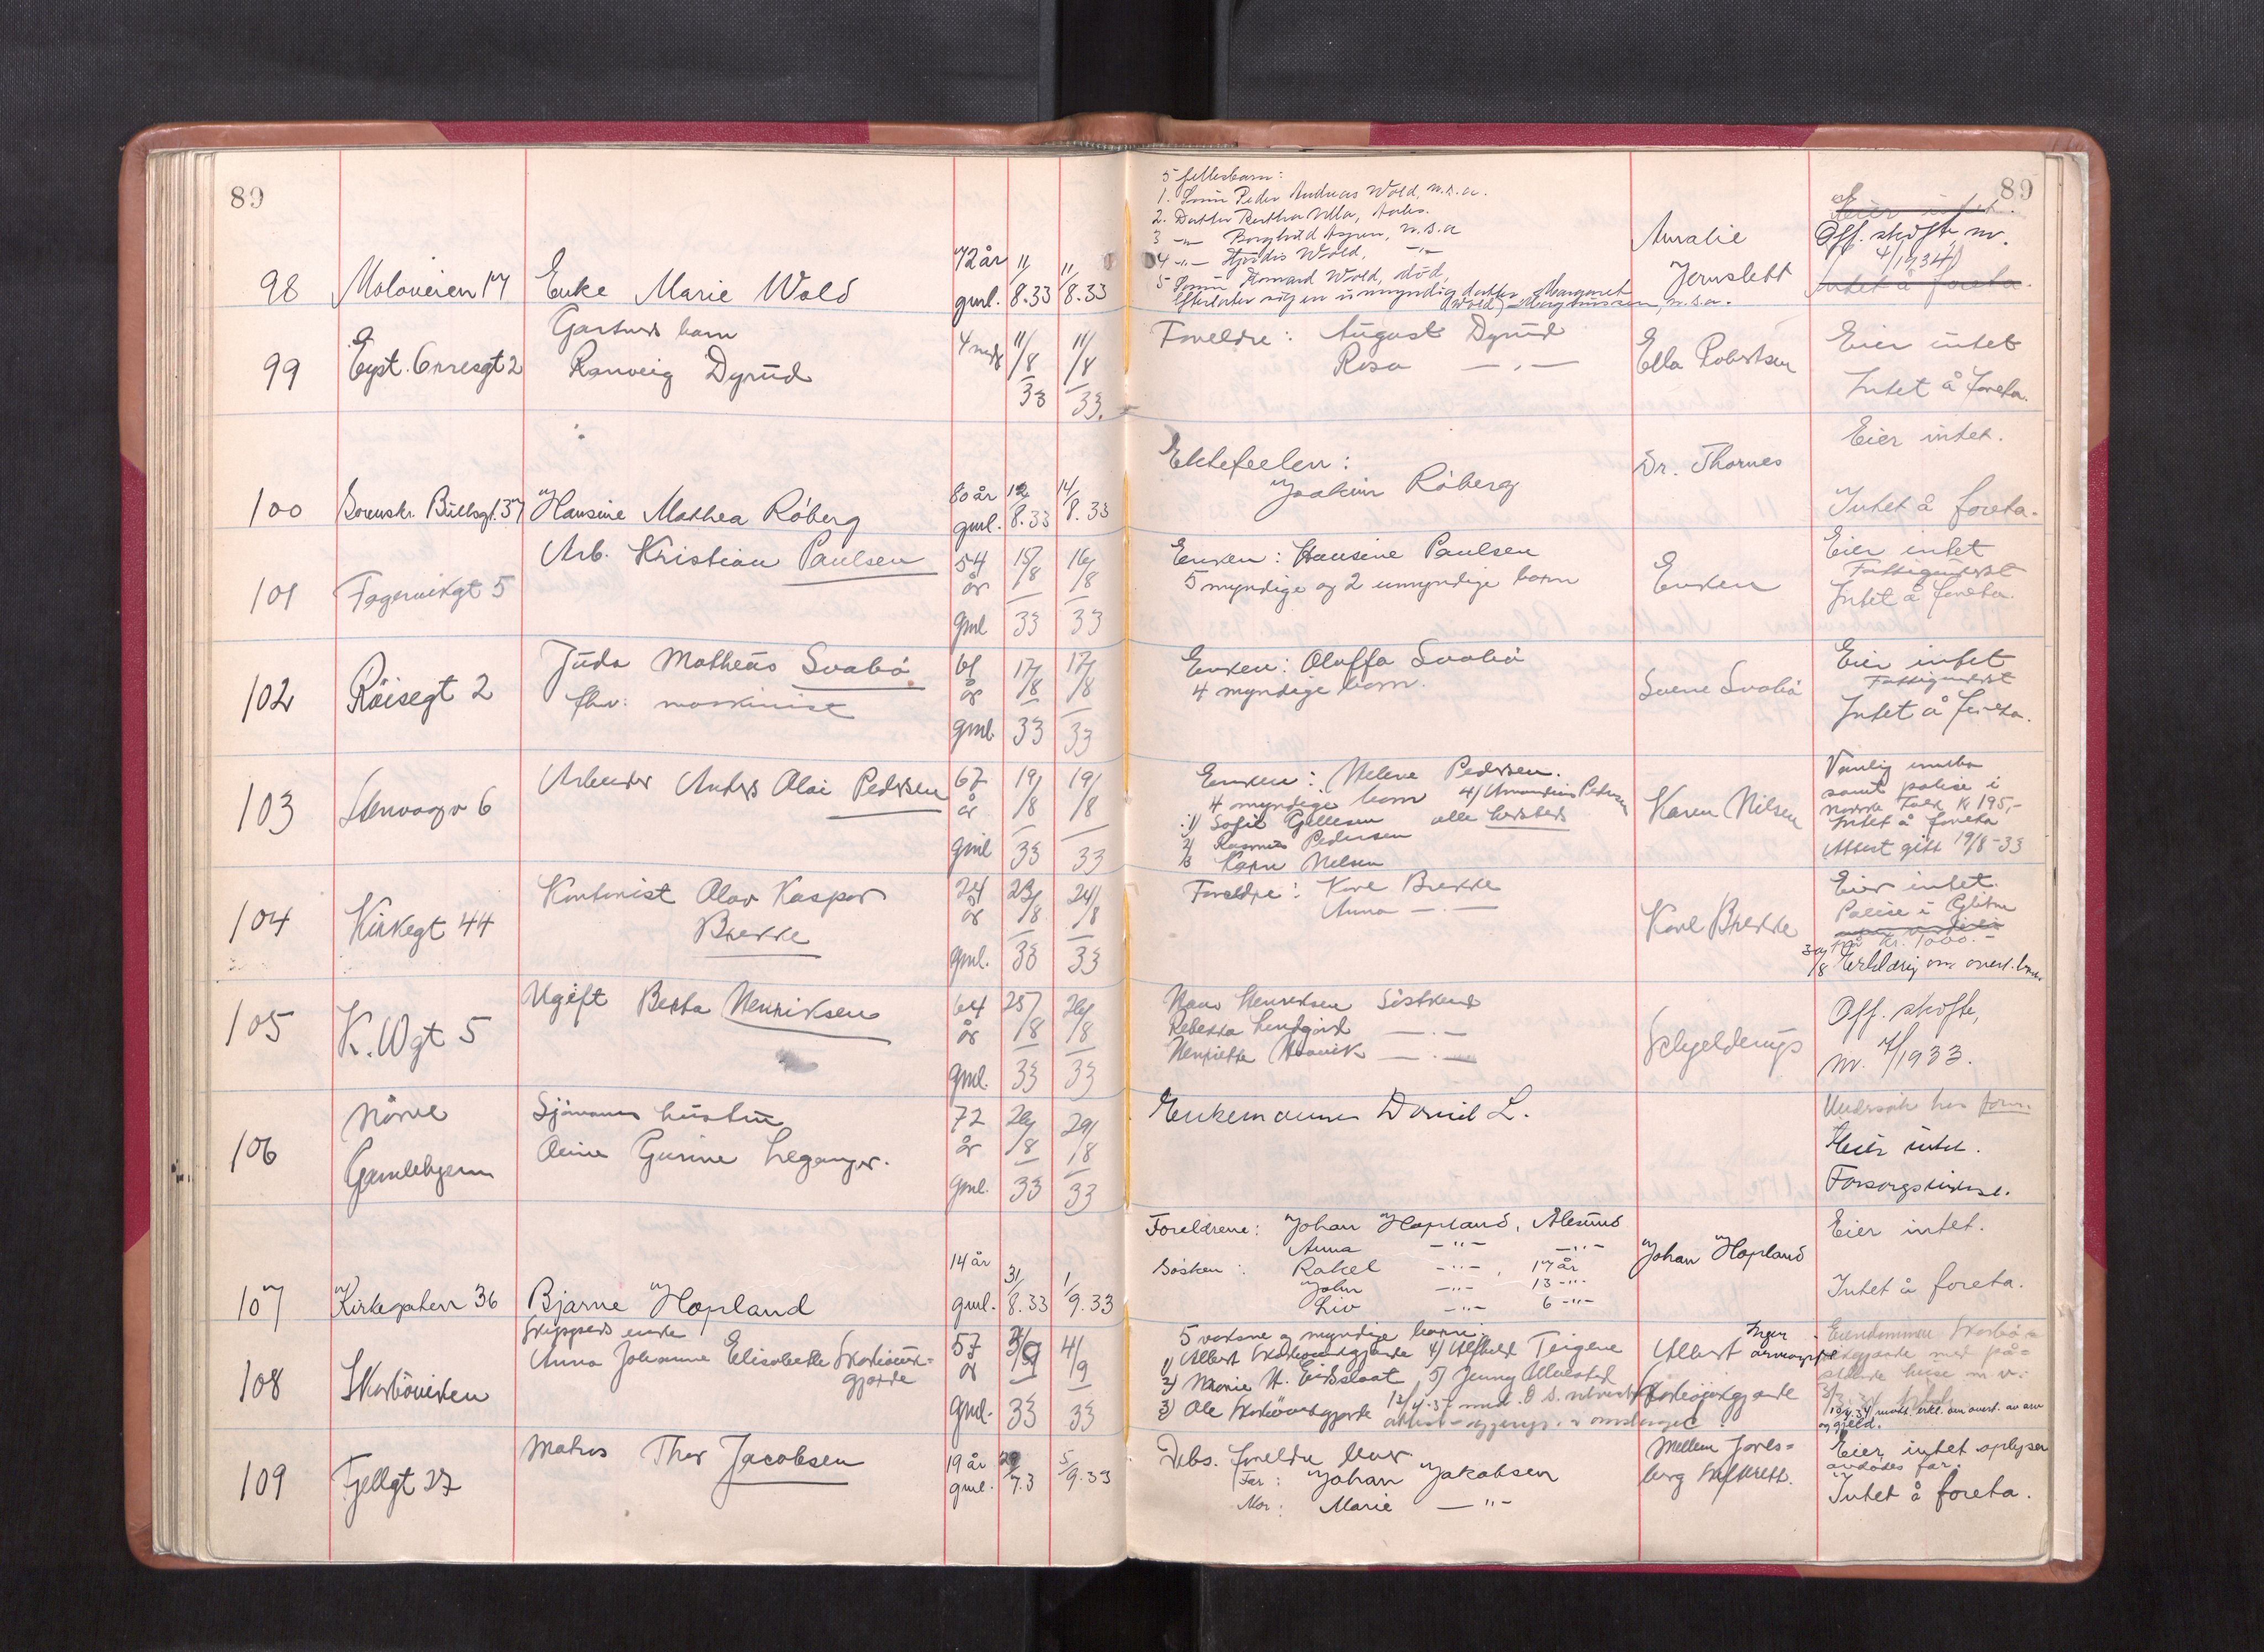 89
89
98 Moloveien 17 Enke Marie Wold 72 år gml. 11/8.33 11/8.33
5 fellesbarn:
1. Sønn Peder Andreas Wold, m.s.a.
2. Datter Bertha
3 -"- Borghild Aspen, m.s.a
4 -"- Hjørdis Wold, -"-
5 Sønn Wold, død,
Efterlater sig en umyndig datter Margaret
(Wold) m.s.a.
Amalie
Jernslett
Eier intet.
Off. skifte nr.
4/1934
Intet å foreta.
99 Eyst. Orresgt 2 Gartners barn
Ranveig Dyrud
4 mndr 11/8 33 11/8 33.
Foreldre: August Dyrud
Rosa — . —
Ella Robertsen
Eier intet
Intet å foreta.
100 Sorenskr. Bullsgt. 37 Hansine Mathea Råberg 80 år gml. 12/8.33 14/8.33
Ektefeelen:
Joakim Råberg
Dr. Thornes
Eier intet.
Intet å foreta.
101 Fagervikgt 5 Arb. Kristian Paulsen 54 år gml 15/8 33 16/8 33
Enken: Hansine Paulsen
5 myndige og 2 umyndige barn
Enken
Eier intet
Fattigunderst
Intet å foreta.
102 Røisegt 2 Juda Matheus Svabø
fhv: maskinist
61 år gml. 17/8 33 17/8 33
Enken: Oluffa Svabø
4 myndige barn.
Sverre Svabø
Eier intet
Fattigunderst
Intet å foreta.
103 Stenvaagv 6 Arbeider Anders Olai Pedersen 67 år gml 19/8 33 19/8 33
Enken: Helene Pedersen.
4 myndige barn 4/ Amandius Pedersen
1/ Sofie Gellesen alle hersteds
2/ Rasmus Pedersen
3/ Karen Nilsen
Karen Nilsen
Vanlig innbo
samt polise i
Norske Folk kr 195,-
Intet å foreta
Attest gitt 19/8-33
104 Kirkegt 44 Kontorist Olav Kaspar
Brekke
24 år gml. 23/8 33 24/8 33
Foreldre: Karl Brekke
Anna — . —
Karl Brekke
Eier intet.
Polise i Glitne
på kr. 1000.-
30/8 Erklæring om overt.
105 K. Wgt 5 Ugift Berta Henriksen 64 år gml. 25/8 33 26/8 33
Hans Henriksen Søskend
Rebekka — . —
Henriette — . —
Schjelderups
Off. skifte,
nr. 7/1933.
106 Nørve
Gamlehjem
Sjømanns hustru
Oline Gurine Leganger.
72 år gml. 28/8 33 29/8 33
Enkemannen Daniel L.
Undersøk hos form.
Eier intet.
107 Kirkegaten 36 Bjarne Hopland 14 år gml. 31/8.33 1/9.33
Foreldrene: Johan Hopland, Ålesund
Anna -"- -"-
Søsken: Rakel -"-, 17 år
John -"- 13 -"-
Liv -"- 6 -"-
Johan Hopland
Eier intet.
Intet å foreta.
108 Skarbøviken Skippers enke
Anna Johanne Elisabethe Skarbøvik=
gjerde
57 år gml. 3/9 33 4/9 33
5 voksne og myndige barn:
1/ Albert Skarbøvikgjerde 4/ Alfhild Teigene
2/ Marie H. Eidsslaat 5/ Jenny
3/ Ole Skarbøvikgjerde
Albert
Skarbøvikgjerde
Eiendommen
gjerde med på=
stående huse m.v.
12/4.34 erkl. om overt. av arv
og gjeld.
109 Fjellgt 27 Matros Thor Jacobsen 19 år gml. 7.3 5/9.33
Debs. foreldre lever
Far: Johan Jakobsen
Mor: Marie — " —
Mellem Jarls=
berg
Eier intet oplyser
avdødes far.
Intet å foreta.